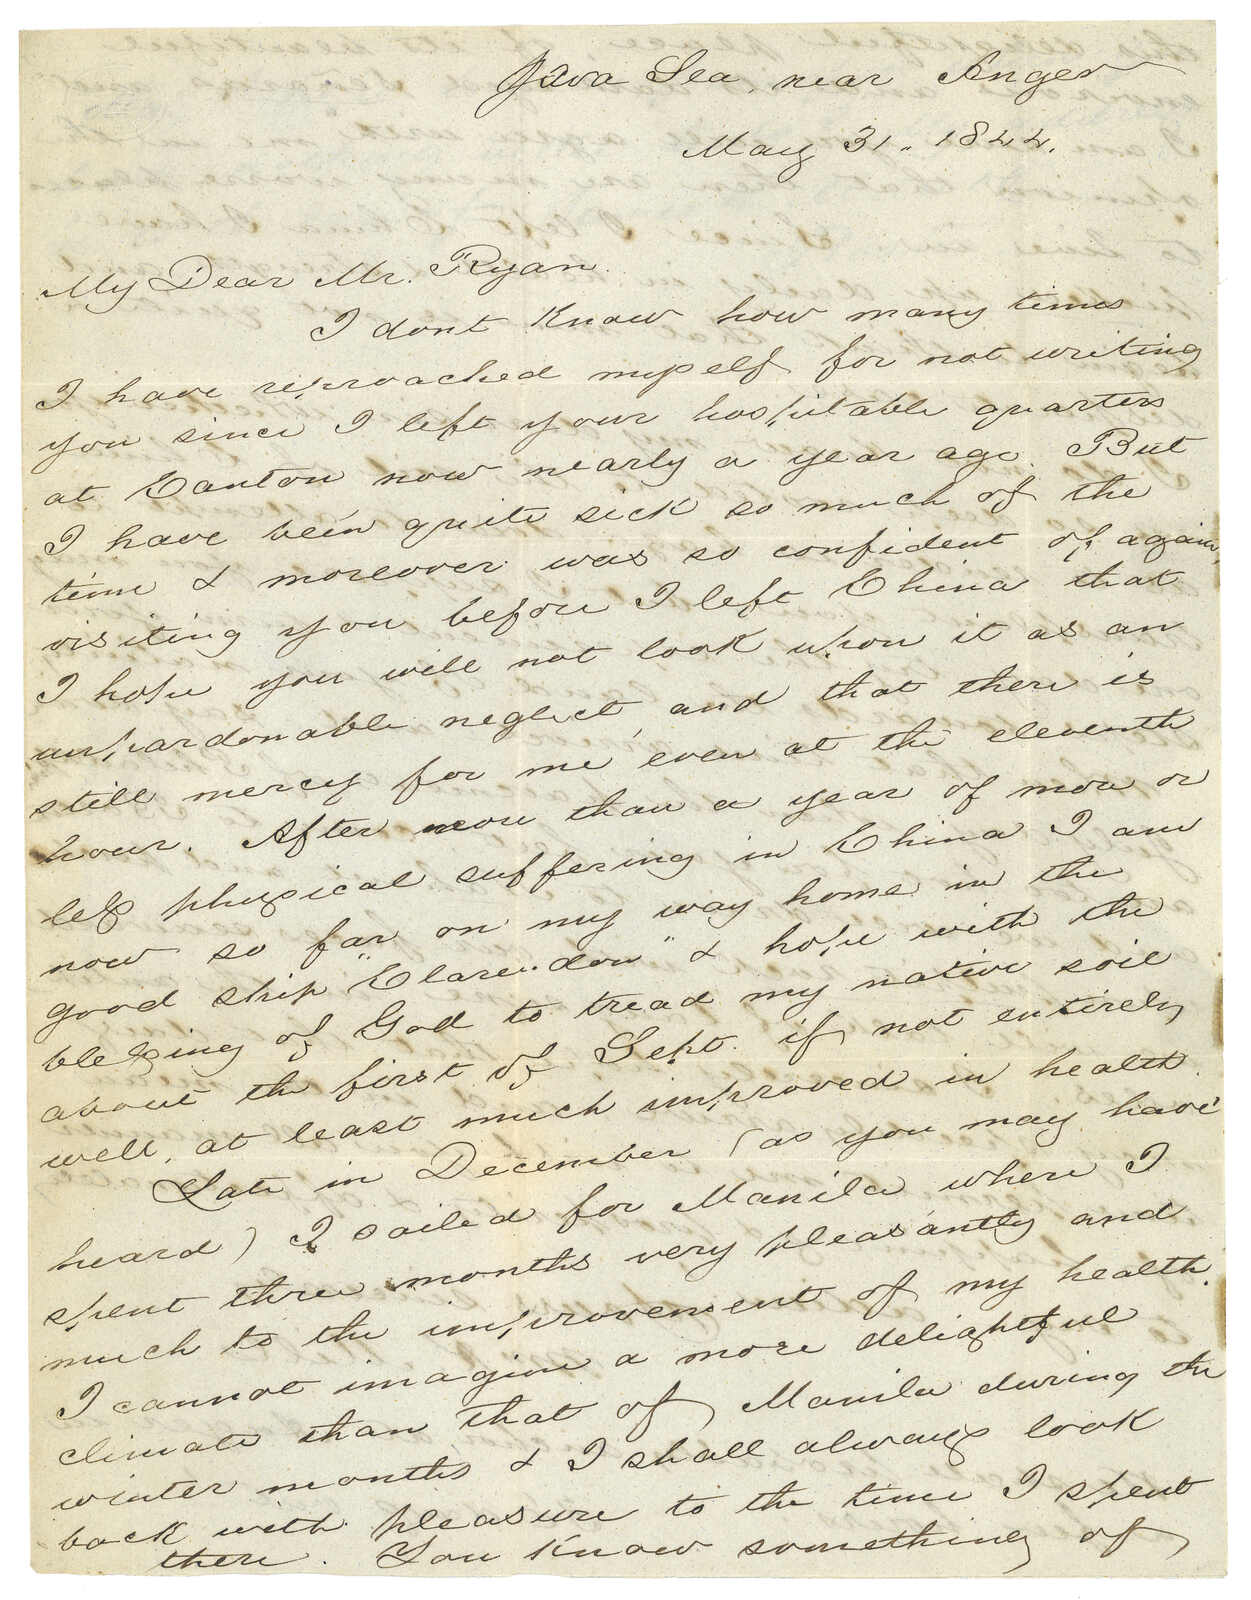 Java Sea, near Anger
May 31. 1844.
My Dear Mr. Ryan.
I dont know how many times
I have reproached myself for not writing
you since I left your hospitable quarters
at Canton now nearly a year ago. But
I have been quite sick so much of the
time & moreover was so confident of again
visiting you before I left China that
I hope you will not look upon it as an
unpardonable neglect, and that there is
still mercy for me even at the eleventh
hour. After more than a year of more or
less physical suffering in China I am
now so far on my way home in the
good ship "Clarendon" & hope with the
blessing of God to tread my native soil
about the first of Sept. if not entirely
well, at least much improved in health.
Late in December (as you may have
heard) I sailed for Manila where I
spent three months very pleasantly and
much to the improvement of my health.
I cannot imagine a more delightful
climate than that of Manila during the
winter months & I shall always look
back with pleasure to the time I spent
there. You know something of